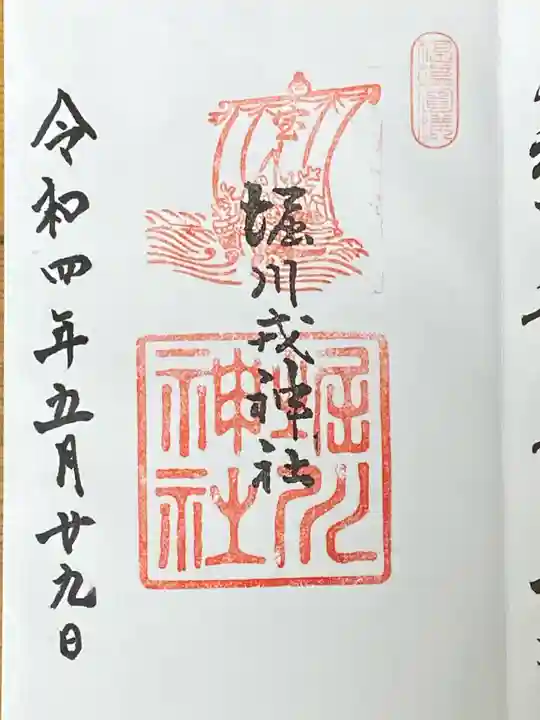 堀川戎神社
宝
堀川
神社
令和四年五月廿九日